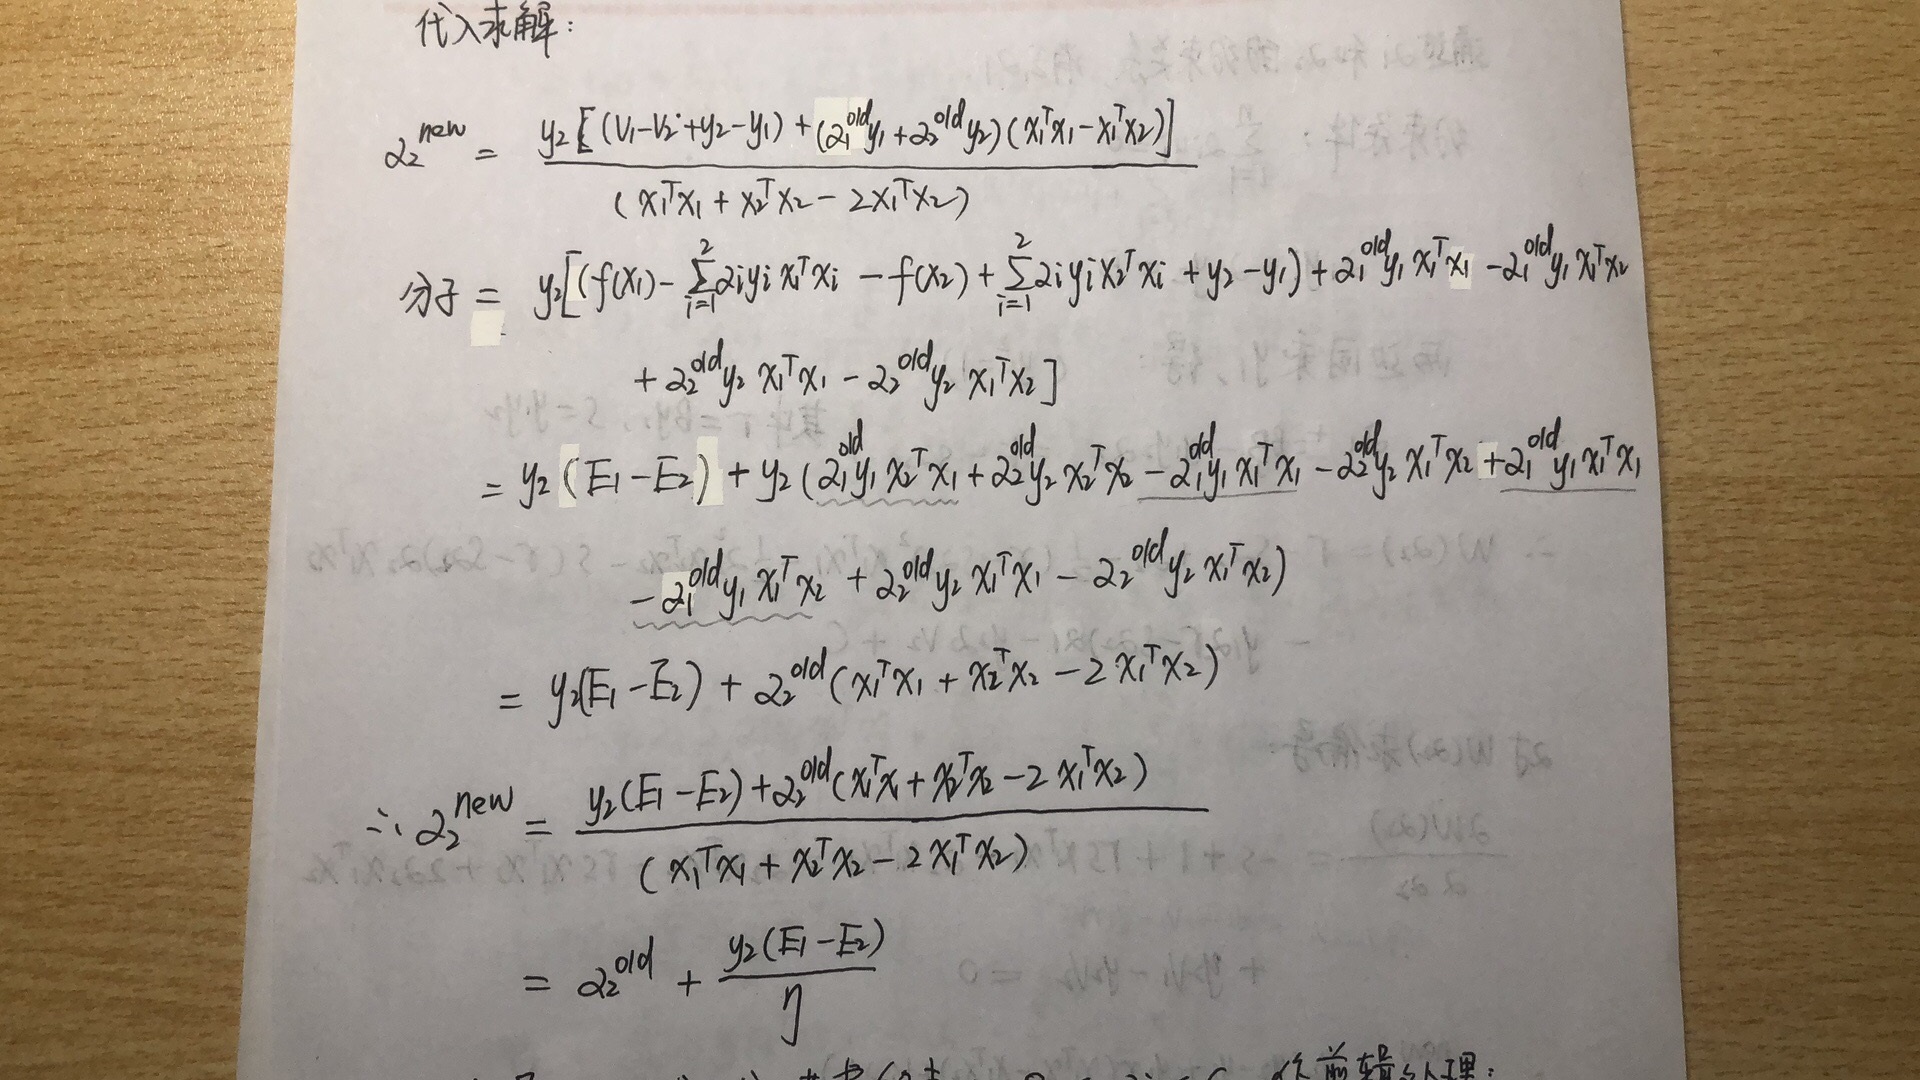 代入求解:
α₂^new = y₂[(v₁-v₂+y₂-y₁)+(α₁^old y₁+α₂^old y₂)(x₁ᵀx₁-x₁ᵀx₂)]
(x₁ᵀx₁+x₂ᵀx₂-2x₁ᵀx₂)
分子 = y₂[(f(x₁)-∑_{i=1}^{2} αᵢyᵢx₁ᵀxᵢ - f(x₂)+∑_{i=1}^{2} αᵢyᵢx₂ᵀxᵢ+y₂-y₁)+α₁^old y₁x₁ᵀx₁-α₁^old y₁x₁ᵀx₂
+α₂^old y₂x₁ᵀx₁-α₂^old y₂x₁ᵀx₂]
= y₂(E₁-E₂)+y₂(α₁^old y₁x₂ᵀx₁+α₂^old y₂x₂ᵀx₂-α₁^old y₁x₁ᵀx₁-α₂^old y₂x₁ᵀx₂+α₁^old y₁x₁ᵀx₁
-α₁^old y₁x₁ᵀx₂+α₂^old y₂x₁ᵀx₁-α₂^old y₂x₁ᵀx₂)
= y₂(E₁-E₂)+α₂^old(x₁ᵀx₁+x₂ᵀx₂-2x₁ᵀx₂)
∴ α₂^new = y₂(E₁-E₂)+α₂^old(x₁ᵀx₁+x₂ᵀx₂-2x₁ᵀx₂)
(x₁ᵀx₁+x₂ᵀx₂-2x₁ᵀx₂)
= α₂^old + y₂(E₁-E₂)
η